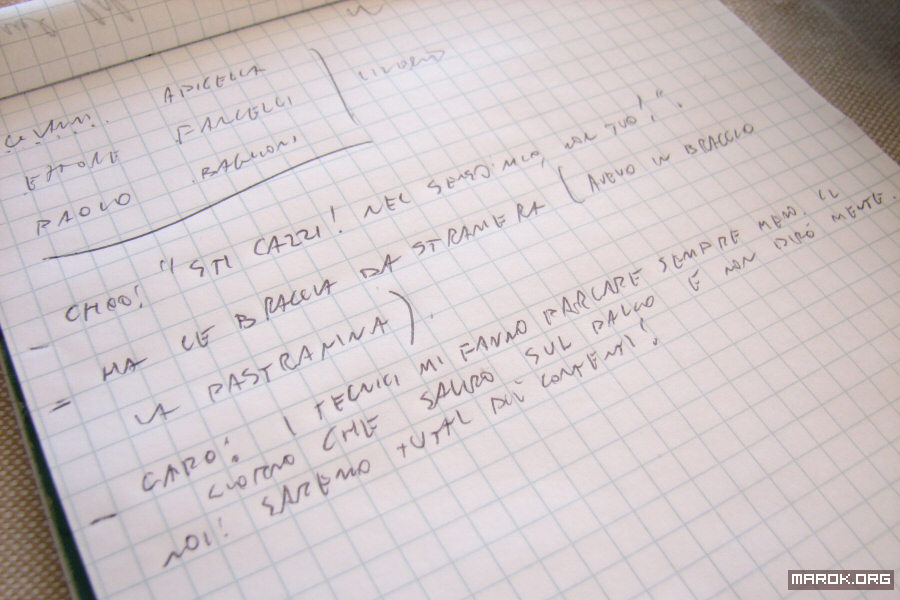 APICELLA
ETTORE FANCELLI LIVORNO
PAOLO BAGLIONI
- CHOO! "I STI CAZZI! NEL SENSO MIO, NON TUO!".
= HA LE BRACCIA DA STRANIERA (AVEVO IN BRACCIO
LA PASTRANINA).
- CARO! I TECNICI MI FANNO PARLARE SEMPRE MENO. IL
GIORNO CHE SALIRÒ SUL PALCO E NON DIRÒ MENTE.
NOI! SAREMO TUTTI PIÙ CONTENTI!
MAROK.ORG